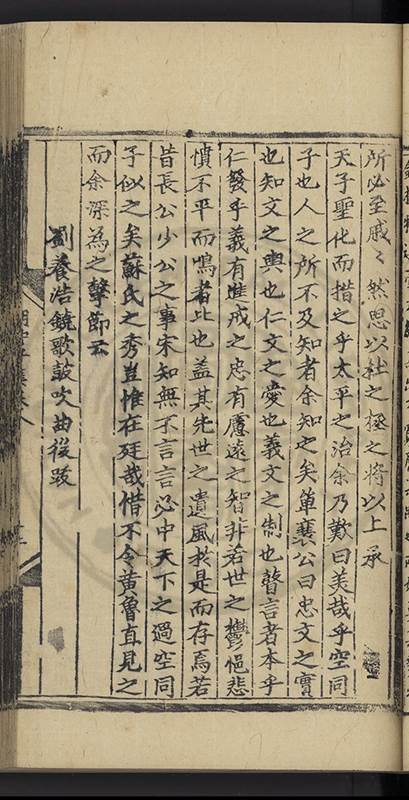 所必至戚〻然思以杜之極之將以上承
天子聖化而措之乎太平之治余乃歎曰美哉乎空同
子也人之所不及知者余知之矣單襄公曰忠文之實
也知文之輿也仁文之愛也義文之制也瞽言者本乎
仁發乎義有進戒之忠有慮遠之智非若世之鬱悒悲
憤不平而鳴者比也蓋其先世之遺風於是而存焉若
昔長公少公之事宋知無不言言必中天下之過空同
子似之矣蘇氏之秀豈惟在廷哉惜不令黃魯直見之
而余深為之擊節云
劉養浩鐃歌鼓吹曲後跋